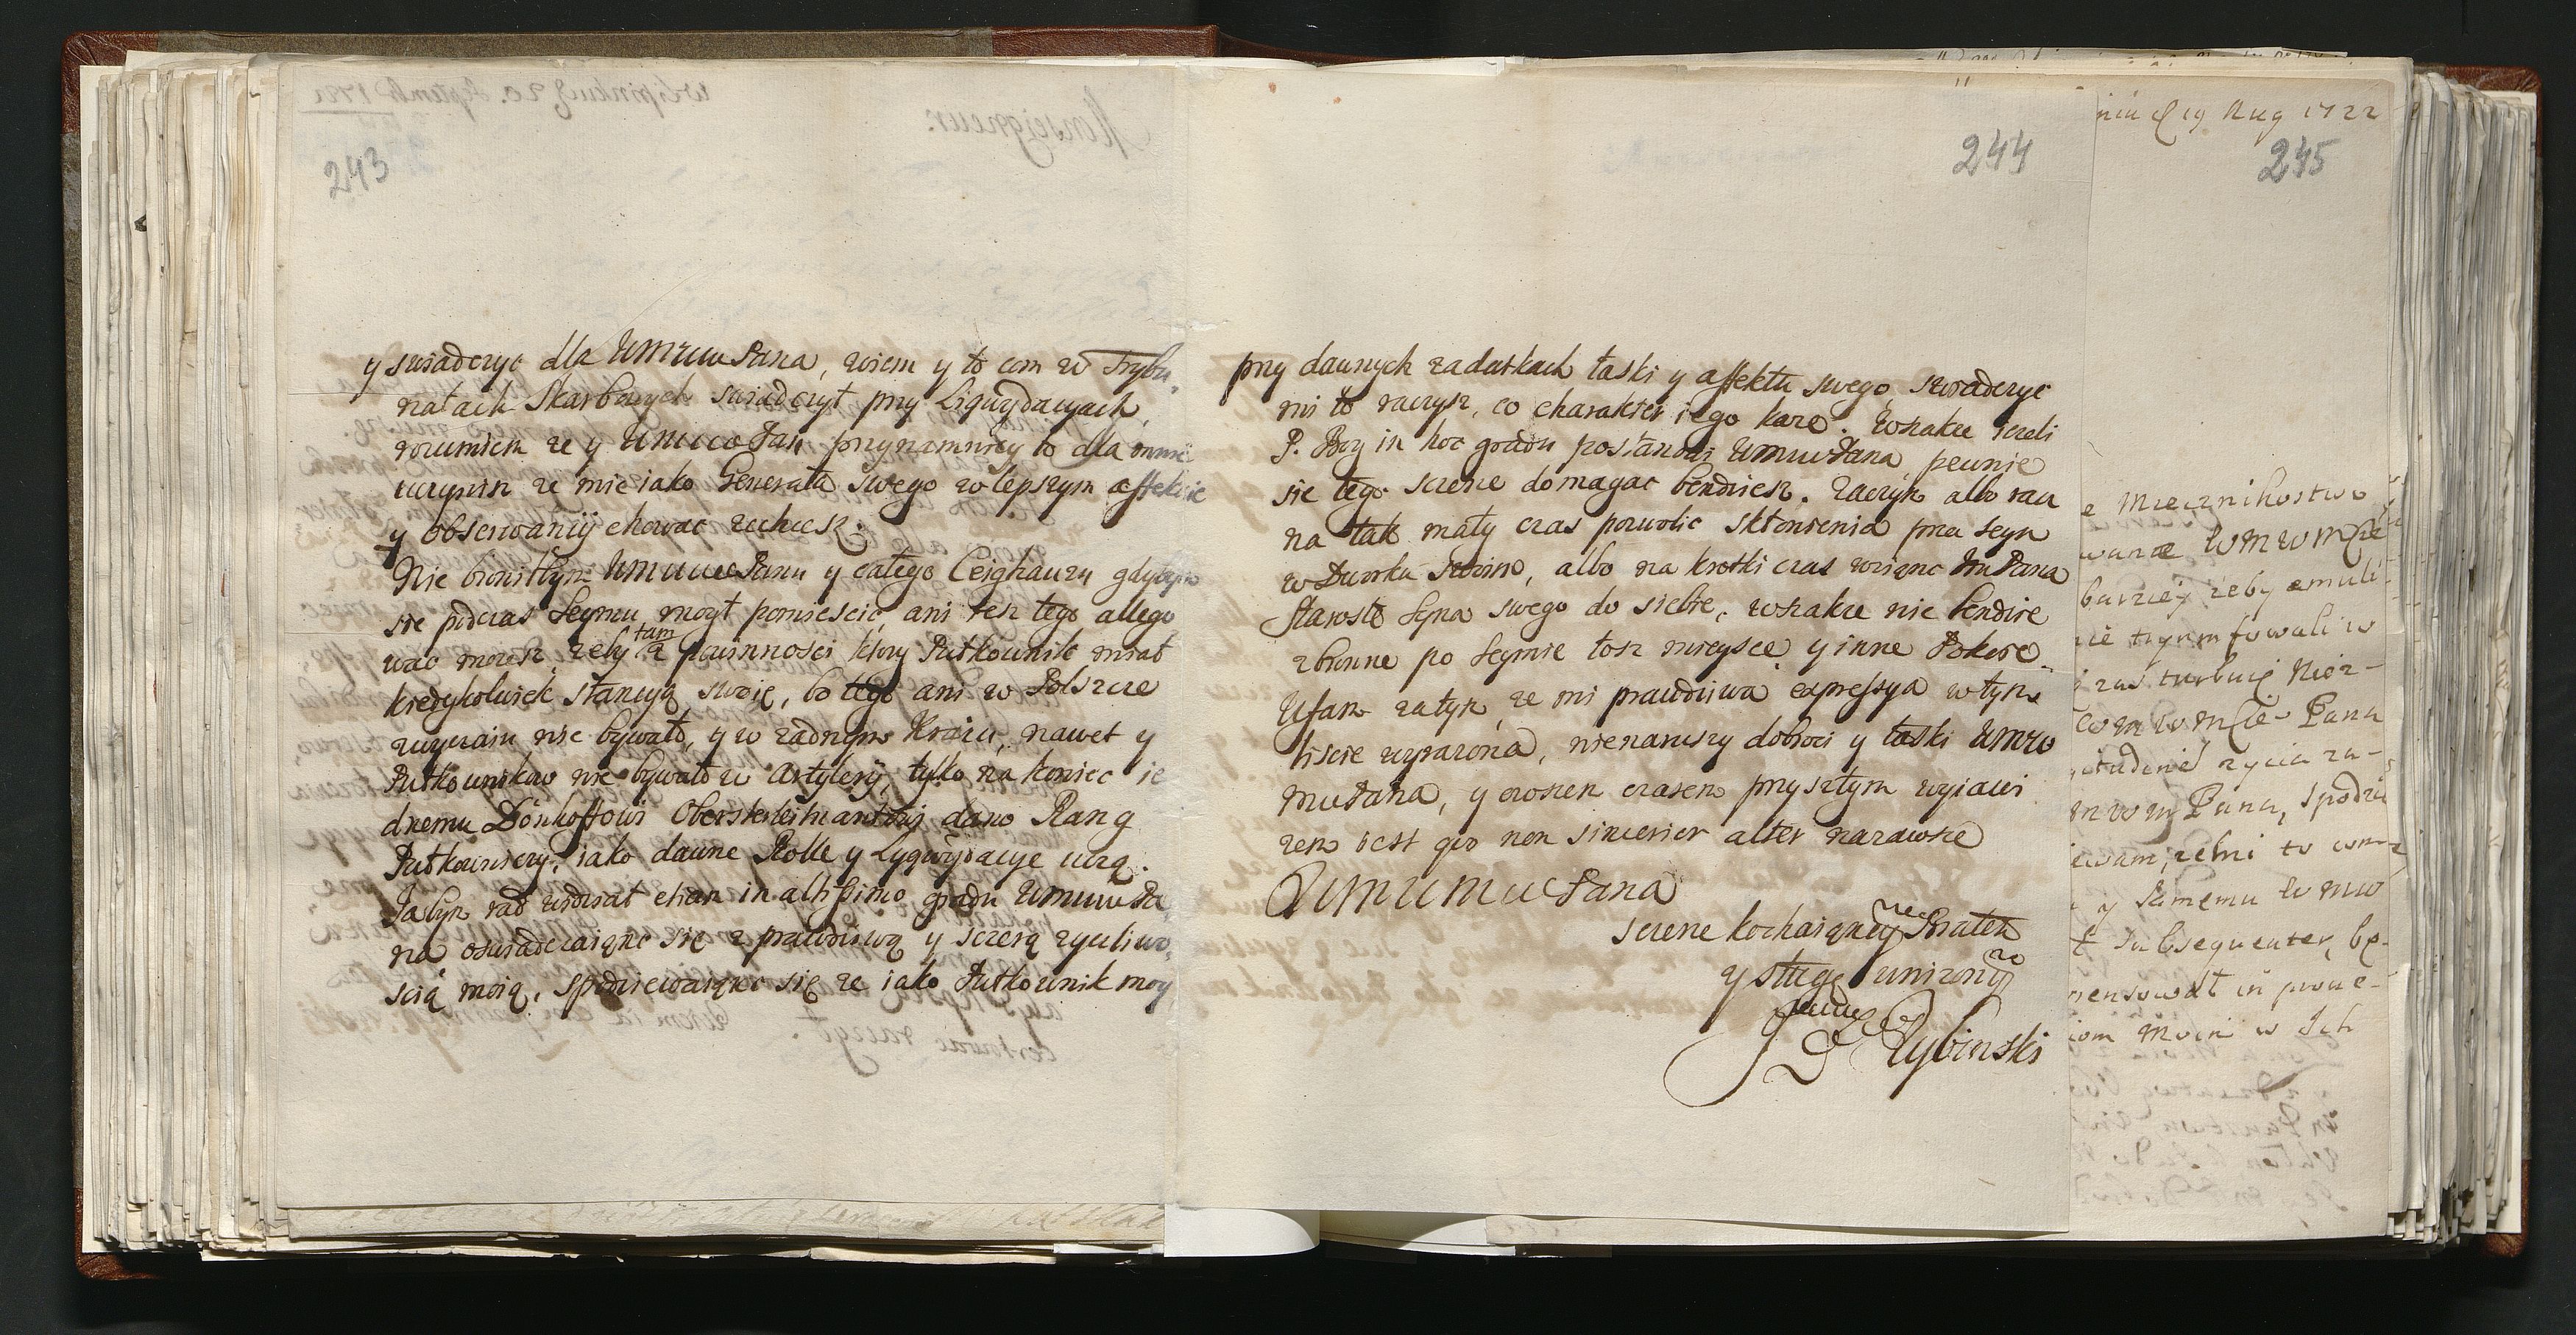 243
y swiadczyc dla WMMM Pana, wiem y to com w Trybu-
nałach Skarbowych swiadczył przy Liquydacyach,
rozumiem ze y Pan przynamniey to dla mnie
uczynisz ze mie iako Generała swego w lepszym affekcie
y obserwanÿ chowac zechcesz.
Nie broniłbym Panu y całego Ceighauzu gdybym
sie podczas Seymu mogł pomiescic, ani tesz tego allego
wac mozesz, zeby tam z powinnosci ktory Pułkownik miał
kiedykolwiek stancyą swoię, bo tego ani w Polszcze
zwyczaiu nie bywało, y w zadnym Kraiu, nawet y
Pułkownikow nie bywało w Artylerÿ, tylko na koniec ie
dnemu Dönhoffowi Obersterleitnantowi dano Rang
Pułkowniczy, iako dawne Rolle y Lyqwydacye uczą.
Ja bym rad widział etiam in altissimo gradu Pa
na oswiadczaiąnc się z prawdziwą y sczerą zycliwo-
scią moią, spodziewaiąnc się ze iako Pułkownik moy
244
przy dawnych zadatkach łaski y affektu swego, swiadczyc
mi to raczysz, co charakter iego kaze. Wszakze iezeli
P. Bog in hoc gradu postanowi Pana, pewnie
sie tego sczerze domagac bendziesz. Zaczym albo racz
na tak mały czas pozwolic skłonienia prza Seym
w Dworku, albo na krotki czas wzianc Pana
Staroste Syna swego do siebie, wszakze nie bendzie
zbronne po Seymie tosz mieysce y inne Pokoie.
Ufam zatym, ze mi prawdziwa expressya w tym
liscie wyrazona, nienaruszy dobroci y łaski WMM
MMPana, y owszem czasem przyszłym wyiawi
zem iest quo non sincerior alter nazawsze
WMMMMPana
sczerze kochaiącym Bratem
y sługą unizonym
Rybinski
niu d 19 Aug 1722
245
e Miecznikostwo
wanæ WMWMPæ
barziey zeby æmuli-
nie tryumfowali w
i zas turbuię Nież-
WMWMPæ Pana
życia za-
mwm Pana, spodzie
iewam, zebni to wm-
y samemu WMW
t subsequenter, bę-
pensował in prove-
iom moim w Ich